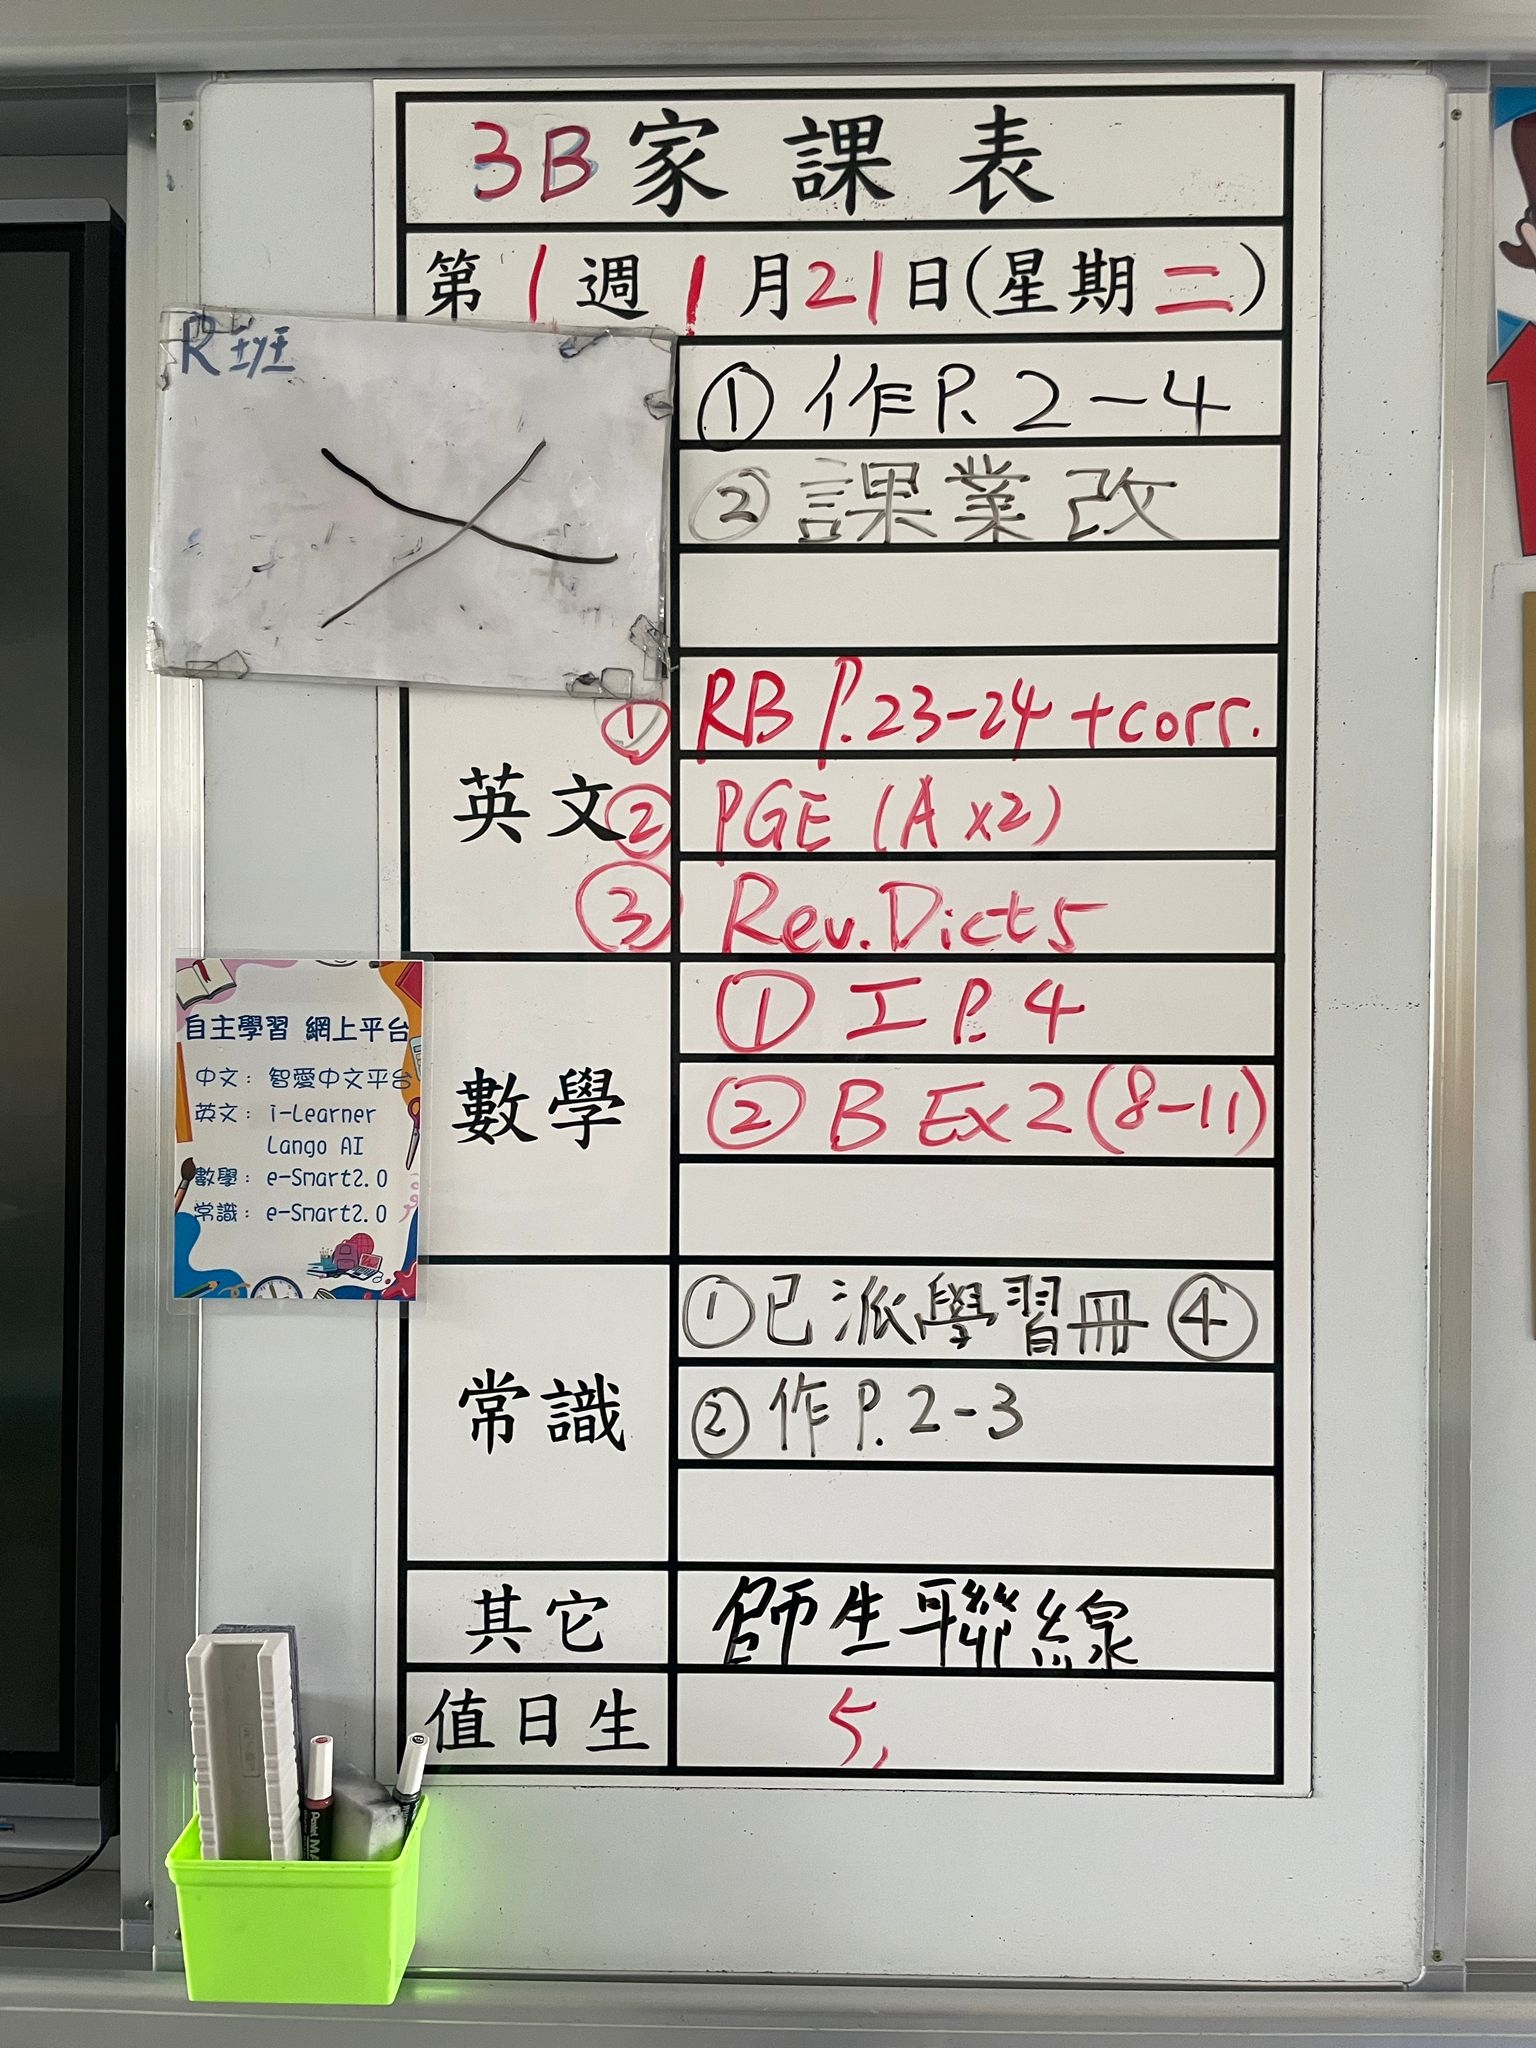 3B家課表
第1週1月21日(星期二)
R班
① 作P. 2-4
② 課業改
英文
① RB P.23-24 +corr.
② PGE (A x2)
③ Rev. Dict 5
數學
① 工 P. 4
② B Ex 2 (8-11)
常識
① 已派學習冊 ④
② 作 P. 2-3
其它
師生聯線
值日生
5,
自主學習 網上平台
中文: 智愛中文平台
英文: i-Learner
Lango AI
數學: e-Smart2.0
常識: e-Smart2.0
Pentel